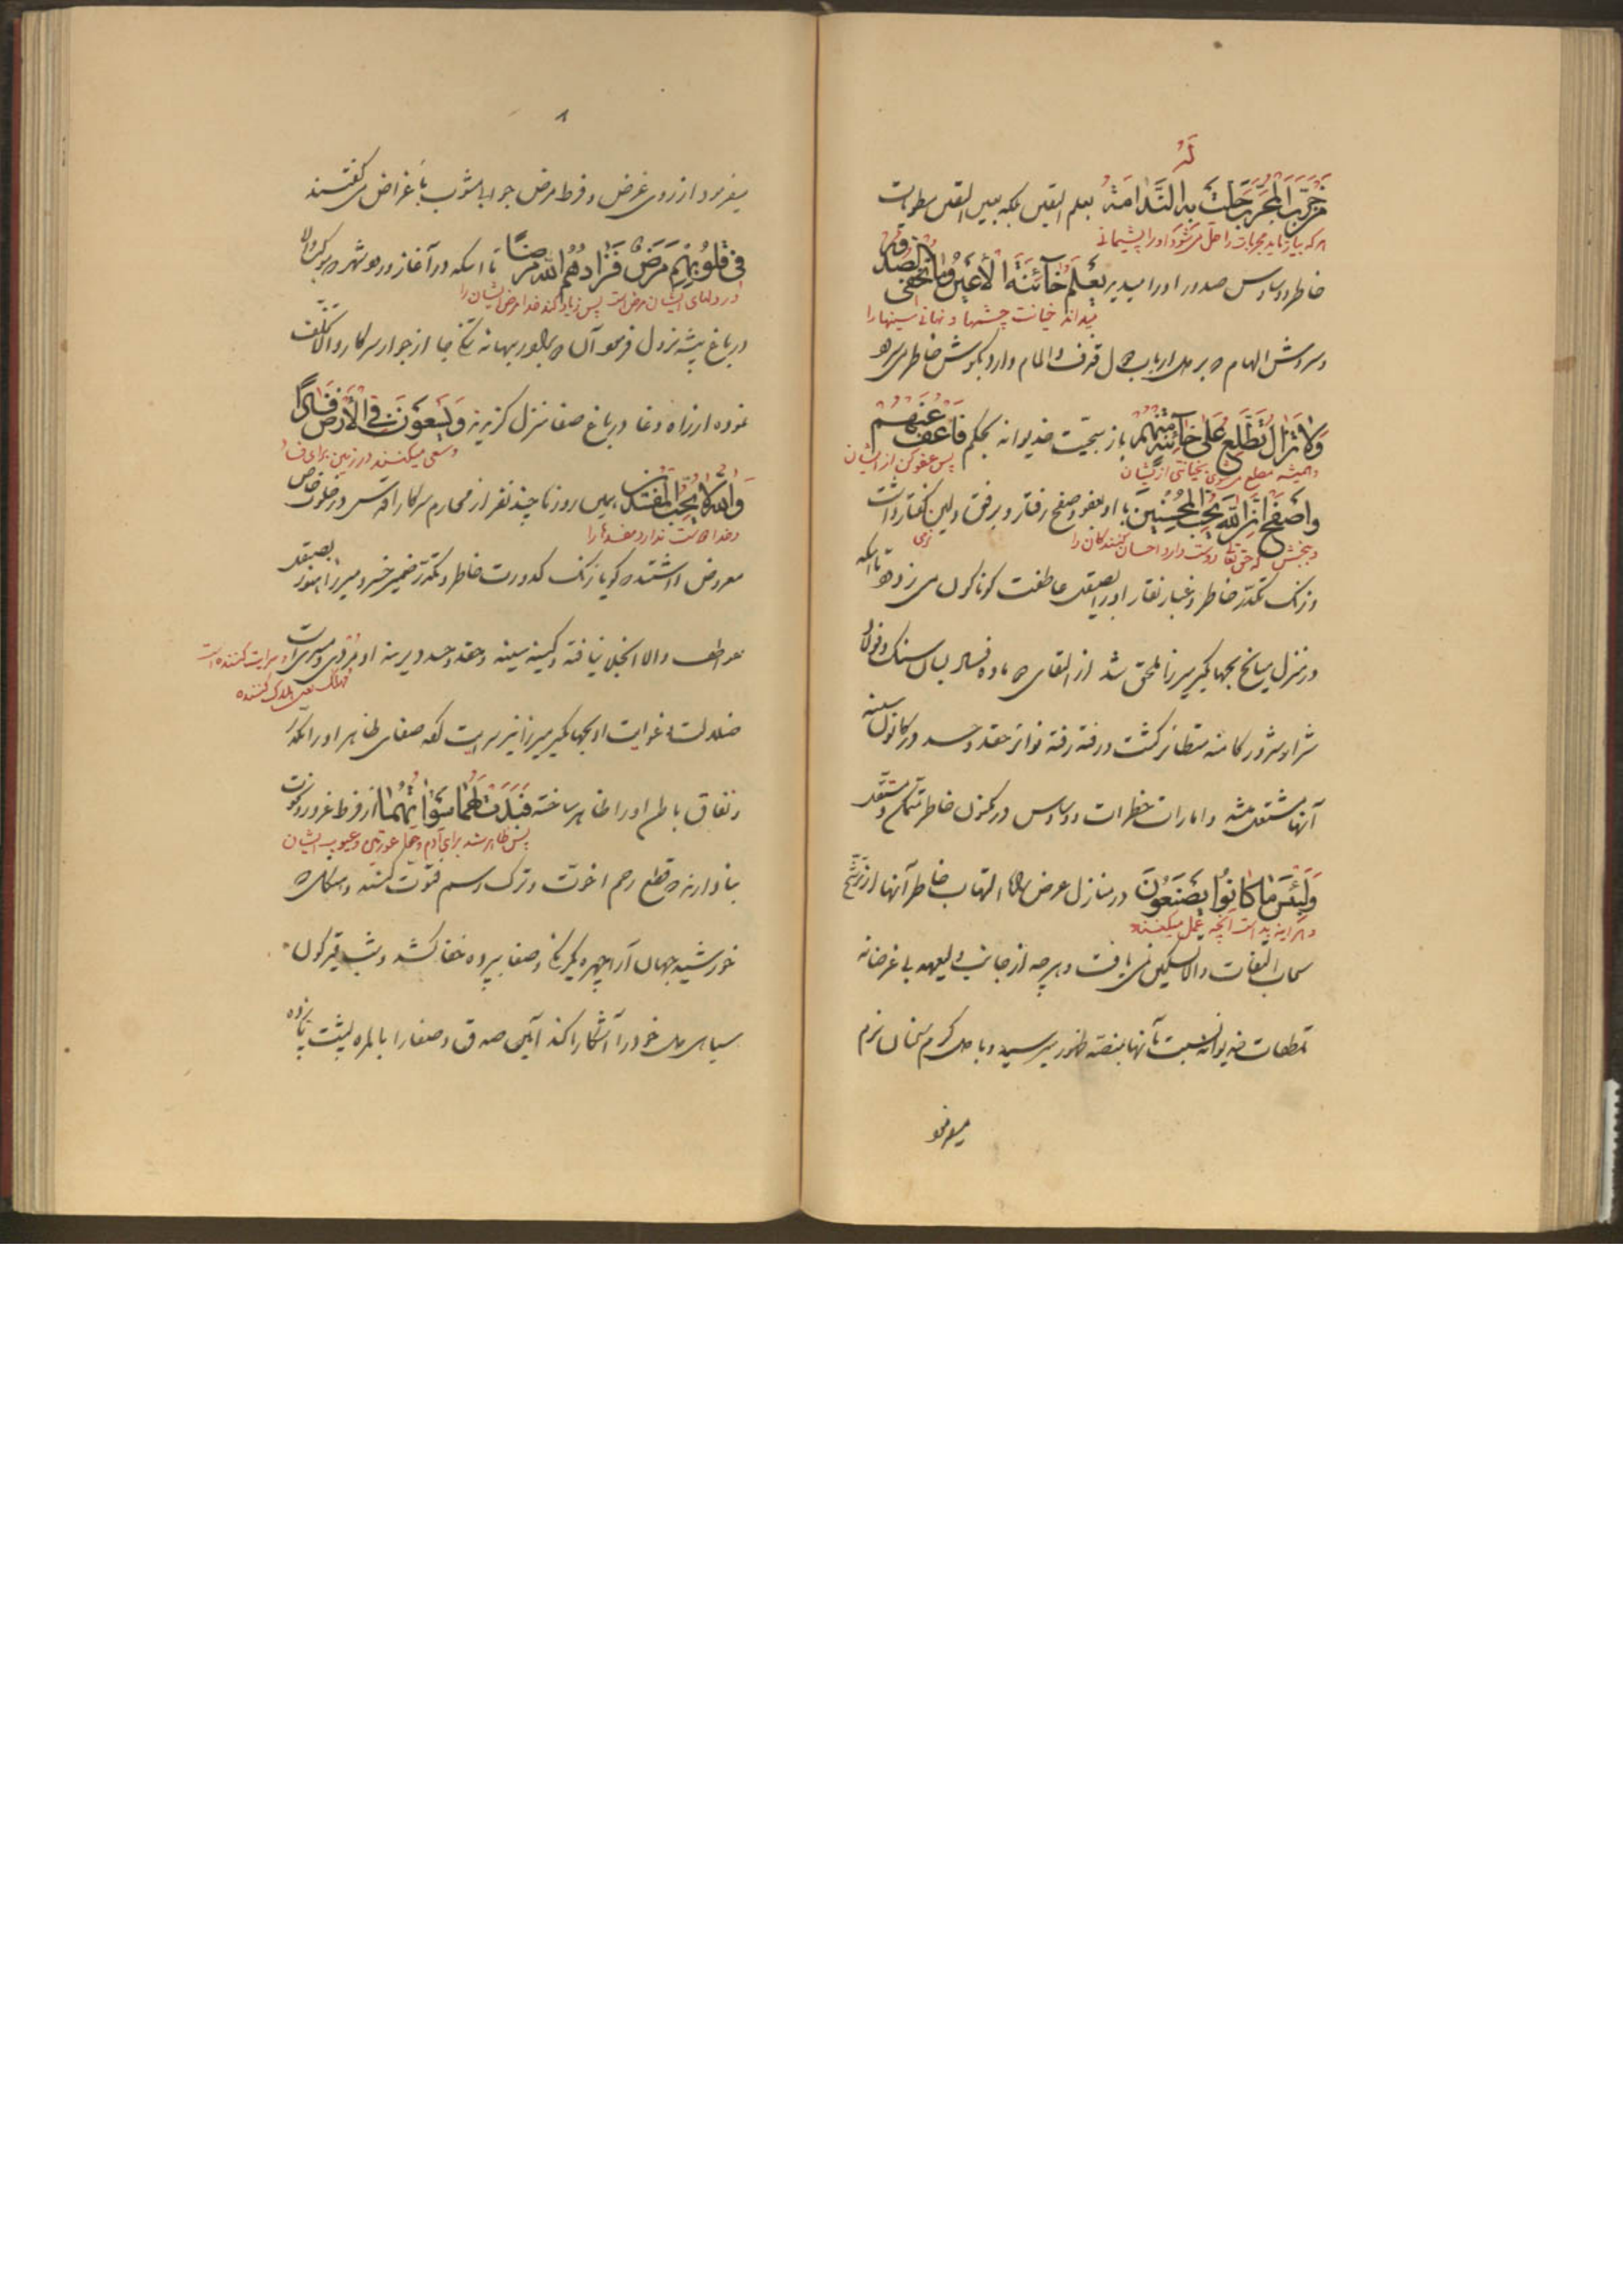 لَهُ
مَنْ جَرَّبَ الْمُجَرَّبَ حَلَّتْ بِهِ النَّدَامَةُ بعلم الیقین بلکه بعین الیقین
هر که بیازماید مجربات را حل می‌شود او را پشیمانی
خاطر و وساوس صدور او را میدید یَعْلَمُ خَآئِنَةَ الْأَعْیُنِ وَمَا تُخْفِی الصُّدُورُ
میداند خیانت چشمها و نهانی سینها را
و سروش الهام که بر دل ارباب
وَلَا تَزَالُ تَطَّلِعُ عَلَى خَآئِنَةٍ مِنْهُمْ باز سجیت خدیوانه بحکم فَاعْفُ عَنْهُمْ
و همیشه مطلع می‌شوی بخیانتی از ایشان پس عفو کن از ایشان
وَاصْفَحْ إِنَّ اللَّهَ یُحِبُّ الْمُحْسِنِینَ با او بعفو و صفح رفتار و برفق و لین گفتار داشت
و ببخش که حق تعالی دوست دارد احسان کنندگان را نرمی
و زنک تکدر خاطر و غبار نقار او را بصیقل عاطفت کوناکون می زدود تا اینکه
در منزل میانج بجهانکیر میرزا ملحق شد از القای ماده فساد بسان سنک و فولاد
شرار شرور کامنه متطایر کشت و رفته رفته نوائر حقد و حسد در کانون سینه
آنها مشتعل شد و امارات خطرات و وساوس در مکنون خاطر متمکن و مستقر
وَلَبِئْسَ مَا کَانُوا یَصْنَعُونَ در منازل عرض راه التهاب خاطر آنها از ترشح
و هر آینه بد است آنچه عمل میکنند
سحاب التفات والا تسکین می یافت و هر چه از جانب ولیعهد بی غرضانه
تلطفات خدیوانه نسبت بآنها بمنصه ظهور میرسید و با دل کرم سخنان نرم
میفرمود
۸
میفرمود از روی غرض و فرط مرض جواب مشوب باغراض می گفتند
فِی قُلُوبِهِمْ مَرَضٌ فَزَادَهُمُ اللَّهُ مَرَضًا تا اینکه در آغاز ورود شهر که موکب والا
در دلهای ایشان مرض است پس زیاد کند خدا مرض ایشان را
در باغ بیشه نزول فرمود آن بهانه از جوار سرکار والا تخلف
نموده از راه دغا در باغ صفا منزل گزیدند وَیَسْعَوْنَ فِی الْأَرْضِ فَسَادًا
و سعی میکنند در زمین برای فساد
وَاللَّهُ لَا یُحِبُّ الْمُفْسِدِینَ همین روزها چند نفر از محارم سرکار اقدس در خلوت خاص
و خدا دوست ندارد مفسد را
معروض داشتند که گویا زنک کدورت خاطر و تکدر ضمیر خسرو میرزا هنوز بصیقل
عواطف والا انجلا نیافته و کینه سینه و حقد و حسد دیرینه او
سرایت کننده است
مهلک یعنی هلاک کننده
ضلالت و غوایت او بجهانکیر میرزا نیز سرایت کرده صفای ظاهر او را مکدر
و نفاق باطن او را ظاهر ساخته فَبَدَتْ لَهُمَا سَوْآتُهُمَا از فرط غرور و نخوت
پس ظاهر شد برای آدم و حوا عورتین و عیوب ایشان
بنا دارند که قطع رحم اخوت و ترک رسم فتوت کنند
خورشید جهان آرا چهره یکرنکی و صفا بپرده خفا کشد و شب قیرکون
سیاهی دل خود را آشکارا کند آیین صدق و صفا را بالمره پشت پا زده